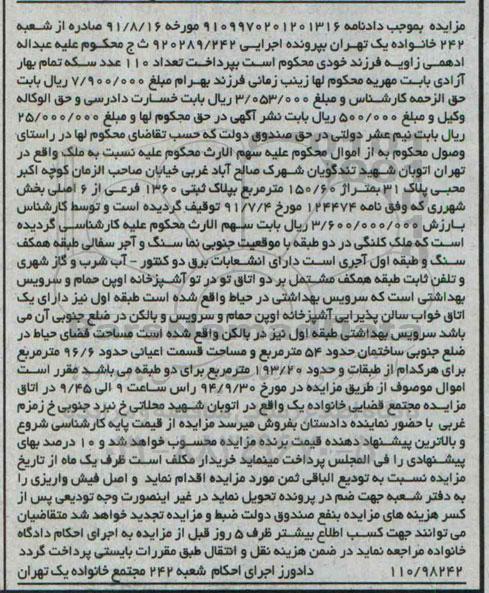 مزایده بموجب دادنامه ۹۱۰۹۹۷۰۲۰۱۲۰۱۳۱۶ مورخه ۹۱/۸/۱۶ صادره از شعبه
۲۴۲ خانواده یک تهران بپرونده اجرایی ۹۲۰۲۸۹/۲۴۲ ث ج محکوم علیه عبداله
ادهمی زاویه فرزند خودی محکوم است بپرداخت تعداد ۱۱۰ عدد سکه تمام بهار
آزادی بابت مهریه محکوم لها زینب زمانی فرزند بهرام مبلغ ۷/۹۰۰/۰۰۰ ریال بابت
حق الزحمه کارشناس و مبلغ ۳/۰۵۳/۰۰۰ ریال بابت خسارت دادرسی و حق الوکاله
وکیل و مبلغ ۵۰۰/۰۰۰ ریال بابت نشر آگهی در حق محکوم لها و مبلغ ۲۵/۰۰۰/۰۰۰
ریال بابت نیم عشر دولتی در حق صندوق دولت که حسب تقاضای محکوم لها در راستای
وصول محکوم به از اموال محکوم علیه سهم الارث محکوم علیه نسبت به ملک واقع در
تهران اتوبان شهید تندگویان شهرک صالح آباد غربی خیابان صاحب الزمان کوچه اکبر
محبی پلاک ۳۱ بمتراژ ۱۵۰/۶۰ مترمربع بپلاک ثبتی ۱۳۶۰ فرعی از ۶ اصلی بخش
شهرری که وفق نامه ۱۲۴۴۷۴ مورخ ۹۱/۷/۴ توقیف گردیده است و توسط کارشناس
بارزش ۳/۶۰۰/۰۰۰/۰۰۰ ریال بابت سهم الارث محکوم علیه کارشناسی گردیده
است که ملک کلنگی در دو طبقه با موقعیت جنوبی نما سنگ و آجر سفالی طبقه همکف
سنگ و طبقه اول آجری است دارای انشعابات برق دو کنتور - آب شرب و گاز شهری
و تلفن ثابت طبقه همکف مشتمل بر دو اتاق تو در تو آشپزخانه اوپن حمام و سرویس
بهداشتی است که سرویس بهداشتی در حیاط واقع شده است طبقه اول نیز دارای یک
اتاق خواب سالن پذیرایی آشپزخانه اوپن حمام و سرویس و بالکن در ضلع جنوبی آن می
باشد سرویس بهداشتی طبقه اول نیز در بالکن واقع شده است مساحت فضای حیاط در
ضلع جنوبی ساختمان حدود ۵۴ مترمربع و مساحت قسمت اعیانی حدود ۹۶/۶ مترمربع
برای هرکدام از طبقات و حدود ۱۹۳/۲۰ مترمربع برای دو طبقه می باشد مقرر است
اموال موصوف از طریق مزایده در مورخ ۹۴/۹/۳۰ راس ساعت ۹ الی ۹/۴۵ در اتاق
مزایده مجتمع قضایی خانواده یک واقع در اتوبان شهید محلاتی خ نبرد جنوبی خ زمزم
غربی با حضور نماینده دادستان بفروش میرسد مزایده از قیمت پایه کارشناسی شروع
و بالاترین پیشنهاد دهنده قیمت برنده مزایده محسوب خواهد شد و ۱۰ درصد بهای
پیشنهادی را فی المجلس پرداخت مینماید خریدار مکلف است ظرف یک ماه از تاریخ
مزایده نسبت به تودیع الباقی ثمن مورد مزایده اقدام نماید و اصل فیش واریزی را
به دفتر شعبه جهت ضم در پرونده تحویل نماید در غیر اینصورت وجه تودیعی پس از
کسر هزینه های مزایده بنفع صندوق دولت ضبط و مزایده تجدید خواهد شد متقاضیان
می توانند جهت کسب اطلاع بیشتر ظرف ۵ روز قبل از مزایده به اجرای احکام دادگاه
خانواده مراجعه نماید در ضمن هزینه نقل و انتقال طبق مقررات بایستی پرداخت گردد
۱۱۰/۹۸۲۴۲ دادورز اجرای احکام شعبه ۲۴۲ مجتمع خانواده یک تهران